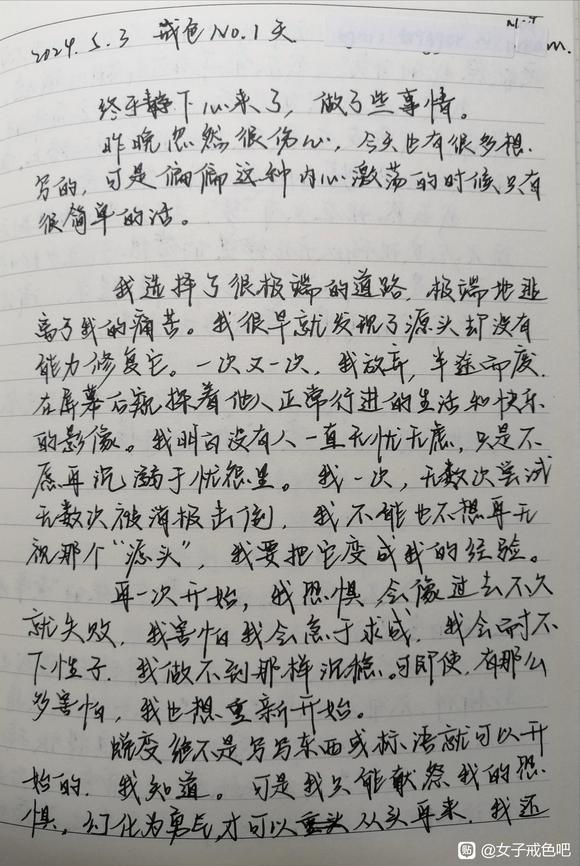 2024.5.3 戒色No.1天
M.T
m.
终于静下心来了，做了些事情。
昨晚忽然很伤心，今天也有很多想
写的，可是偏偏这种内心激荡的时候只有
很简单的话。
我选择了很极端的道路，极端地逃
离了我的痛苦。我很早就发现了源头却没有
能力修复它。一次又一次，我放弃，半途而废，
在屏幕后窥探着他人正常行进的生活和快乐
的影像。我明白没有人一直无忧无虑，只是不
愿再沉溺于忧愁里。我一次，无数次尝试
无数次被消极击倒，我不能也不想再无
视那个“源头”，我要把它变成我的经验。
再一次开始，我恐惧，会像过去不久
就失败，我害怕我会急于求成，我会耐不
下性子，我做不到那样沉稳。可即使，有那么
多害怕，我也想重新开始。
蜕变绝不是写写东西或标语就可以开
始的，我知道。可是我只能献祭我的恐
惧，幻化为勇气，才可以从头再来，我还
贴 @女子戒色吧